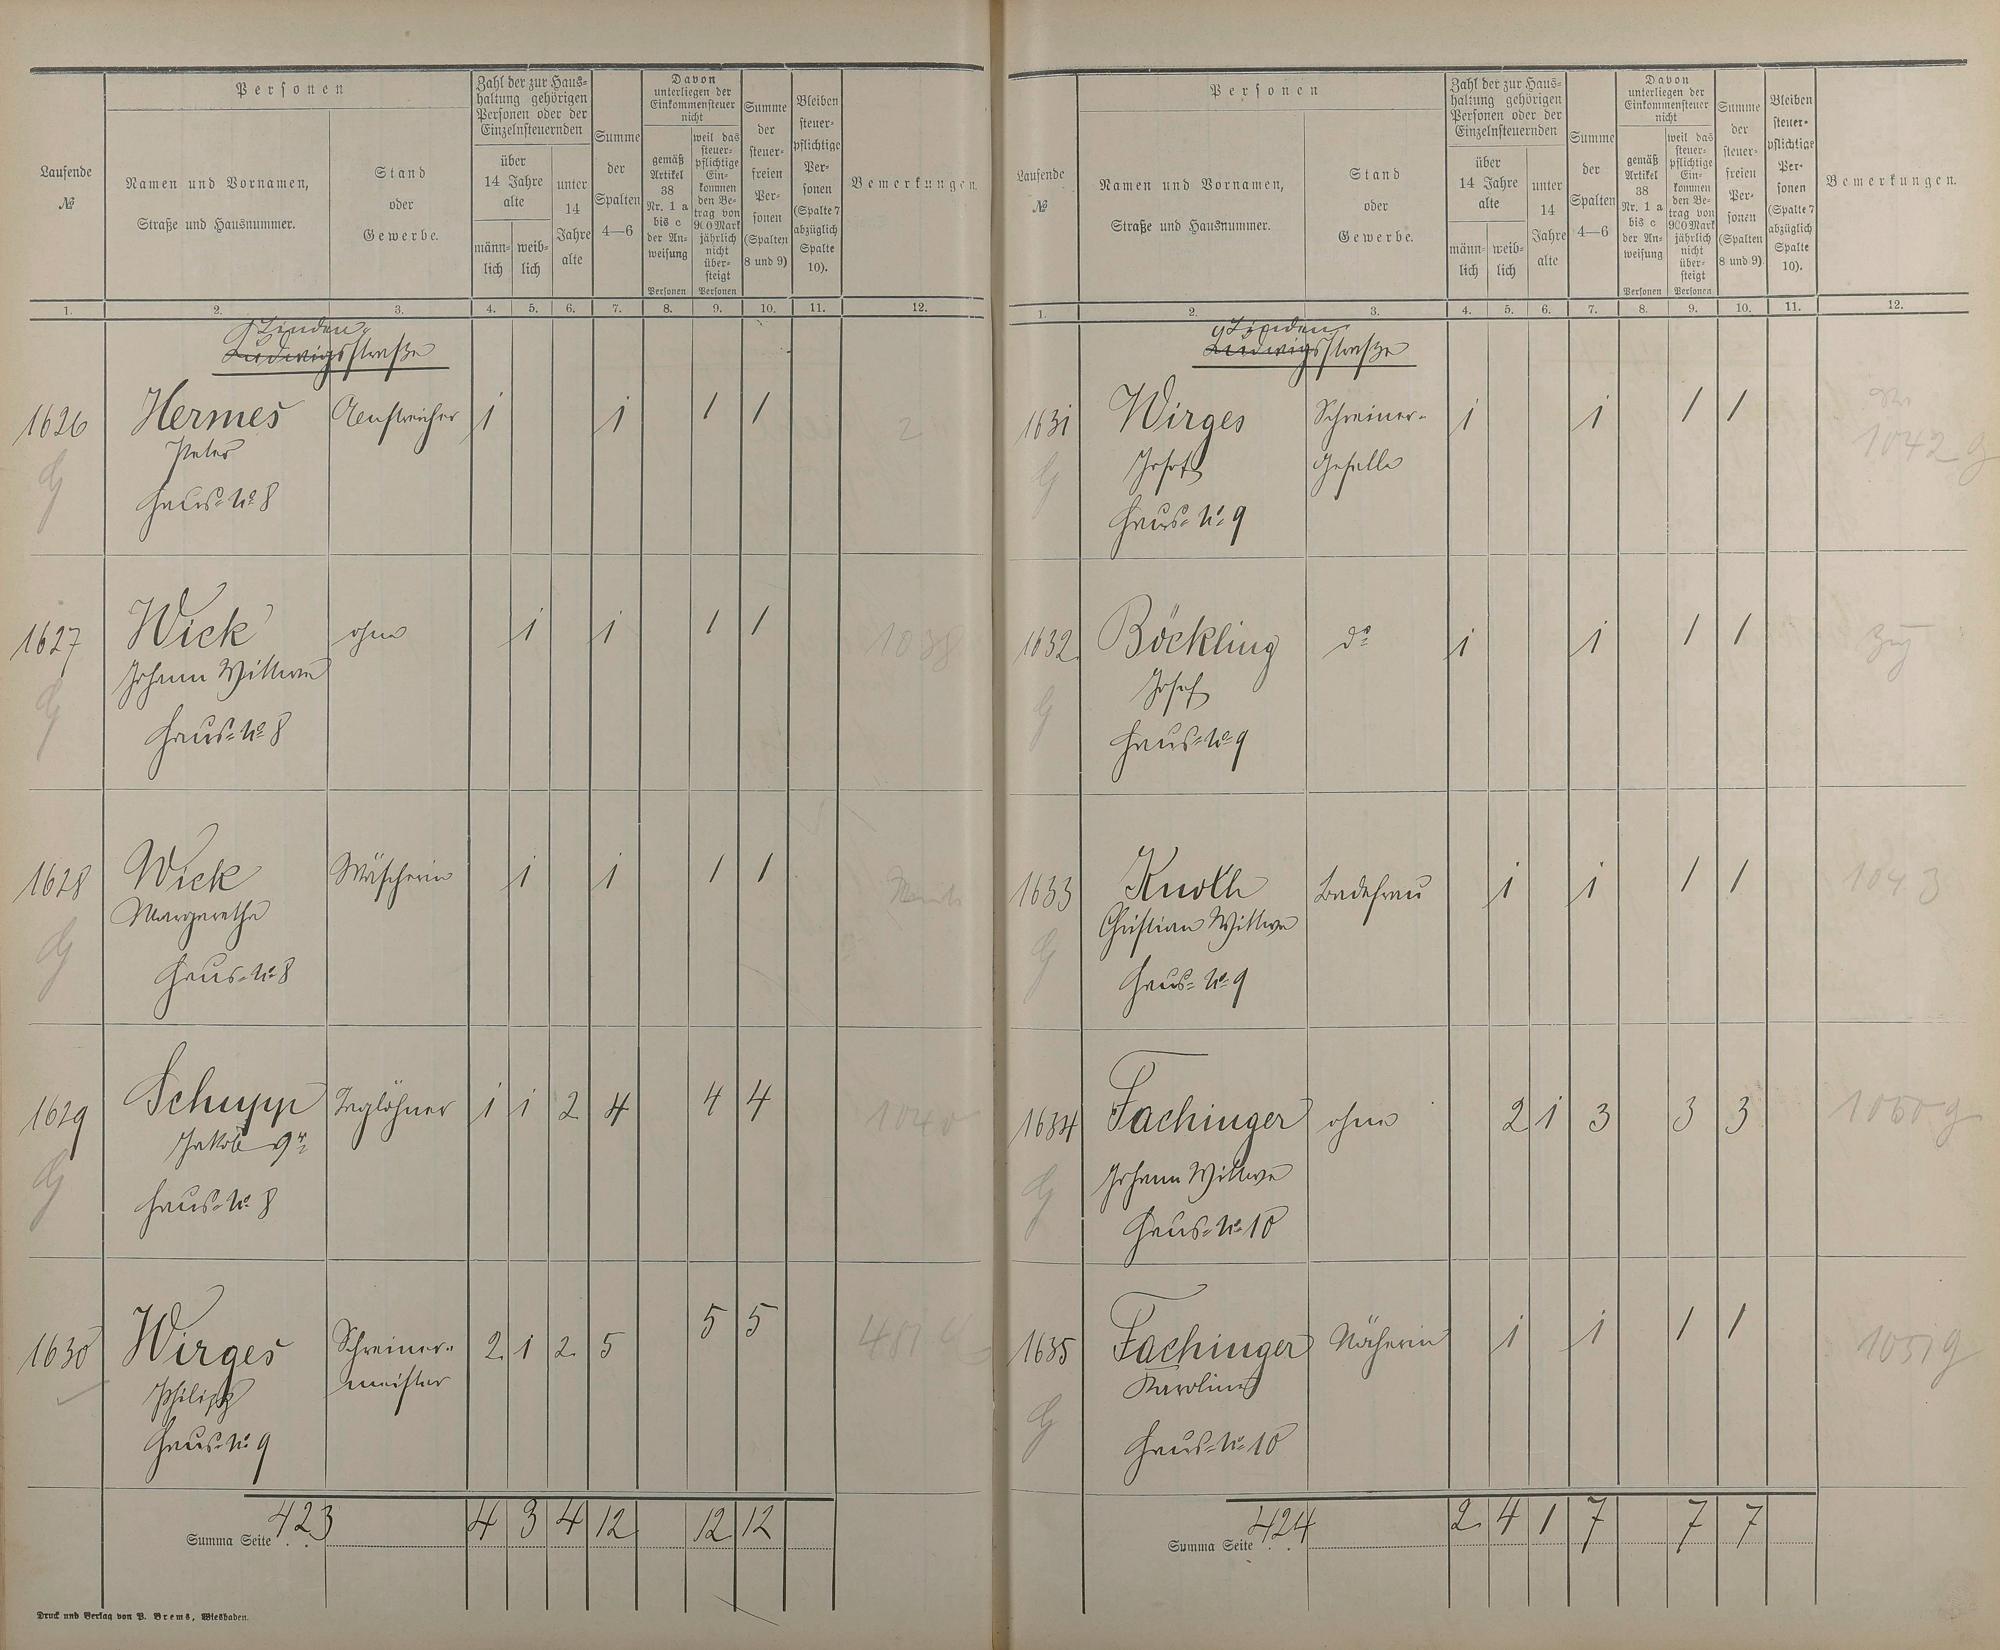 Laufende
№
Personen
Namen und Vornamen,
Straße und Hausnummer.
Stand
oder
Gewerbe.
Zahl der zur Haus-
haltung gehörigen
Personen oder der
Einzelnsteuernden
über
14 Jahre
alte
männ-
lich
weib-
lich
unter
14
Jahre
alte
Summe
der
Spalten
4—6
Davon
unterliegen der
Einkommensteuer
nicht
gemäß
Artikel
38
Nr. 1 a
bis c
der An-
weisung
Personen
weil das
steuer-
pflichtige
Ein-
kommen
den Be-
trag von
900 Mark
jährlich
nicht
über-
steigt
Personen
Summe
der
steuer-
freien
Per-
sonen
(Spalten
8 und 9)
Bleiben
steuer-
pflichtige
Per-
sonen
(Spalte 7
abzüglich
Spalte
10).
Bemerkungen.
1. 2. 3. 4. 5. 6. 7. 8. 9. 10. 11. 12.
Linden
Ludwigsstraße
1626 Hermes Anstreicher 1 1 1 1 2
Peter
Haus-No 8
1627 Wick ohne 1 1 1 1 1038
Johann Wittwe
Haus-No 8
1628 Wick Wäscherin 1 1 1 1
Margarethe
Haus-No 8
1629 Schupp Taglöhner 1 1 2 4 4 4 1040
Jakob 9r
Haus-No 8
1630 Wirges Schreiner- 2 1 2 5 5 5
meister
Philipp
Haus-No 9
Summa Seite 423 4 3 4 12 12 12
Druck und Verlag von P. Brems, Wiesbaden.
Laufende
№
Personen
Namen und Vornamen,
Straße und Hausnummer.
Stand
oder
Gewerbe.
Zahl der zur Haus-
haltung gehörigen
Personen oder der
Einzelnsteuernden
über
14 Jahre
alte
männ-
lich
weib-
lich
unter
14
Jahre
alte
Summe
der
Spalten
4—6
Davon
unterliegen der
Einkommensteuer
nicht
gemäß
Artikel
38
Nr. 1 a
bis c
der An-
weisung
Personen
weil das
steuer-
pflichtige
Ein-
kommen
den Be-
trag von
900 Mark
jährlich
nicht
über-
steigt
Personen
Summe
der
steuer-
freien
Per-
sonen
(Spalten
8 und 9)
Bleiben
steuer-
pflichtige
Per-
sonen
(Spalte 7
abzüglich
Spalte
10).
Bemerkungen.
1. 2. 3. 4. 5. 6. 7. 8. 9. 10. 11. 12.
Linden
Ludwigsstraße
1631 Wirges Schreiner- 1 1 1 1 1042 g
Josef Geselle
Haus-No 9
1632 Böckling do 1 1 1 1
Josef
Haus-No 9
1633 Knoth Badefrau 1 1 1 1 1043
Christian Wittwe
Haus-No 9
1634 Fachinger ohne 2 1 3 3 3 1050 g
Johann Wittwe
Haus-No 10
1635 Fachinger Näherin 1 1 1 1 1051 g
Karoline
Haus-No 10
Summa Seite 424 2 4 1 7 7 7